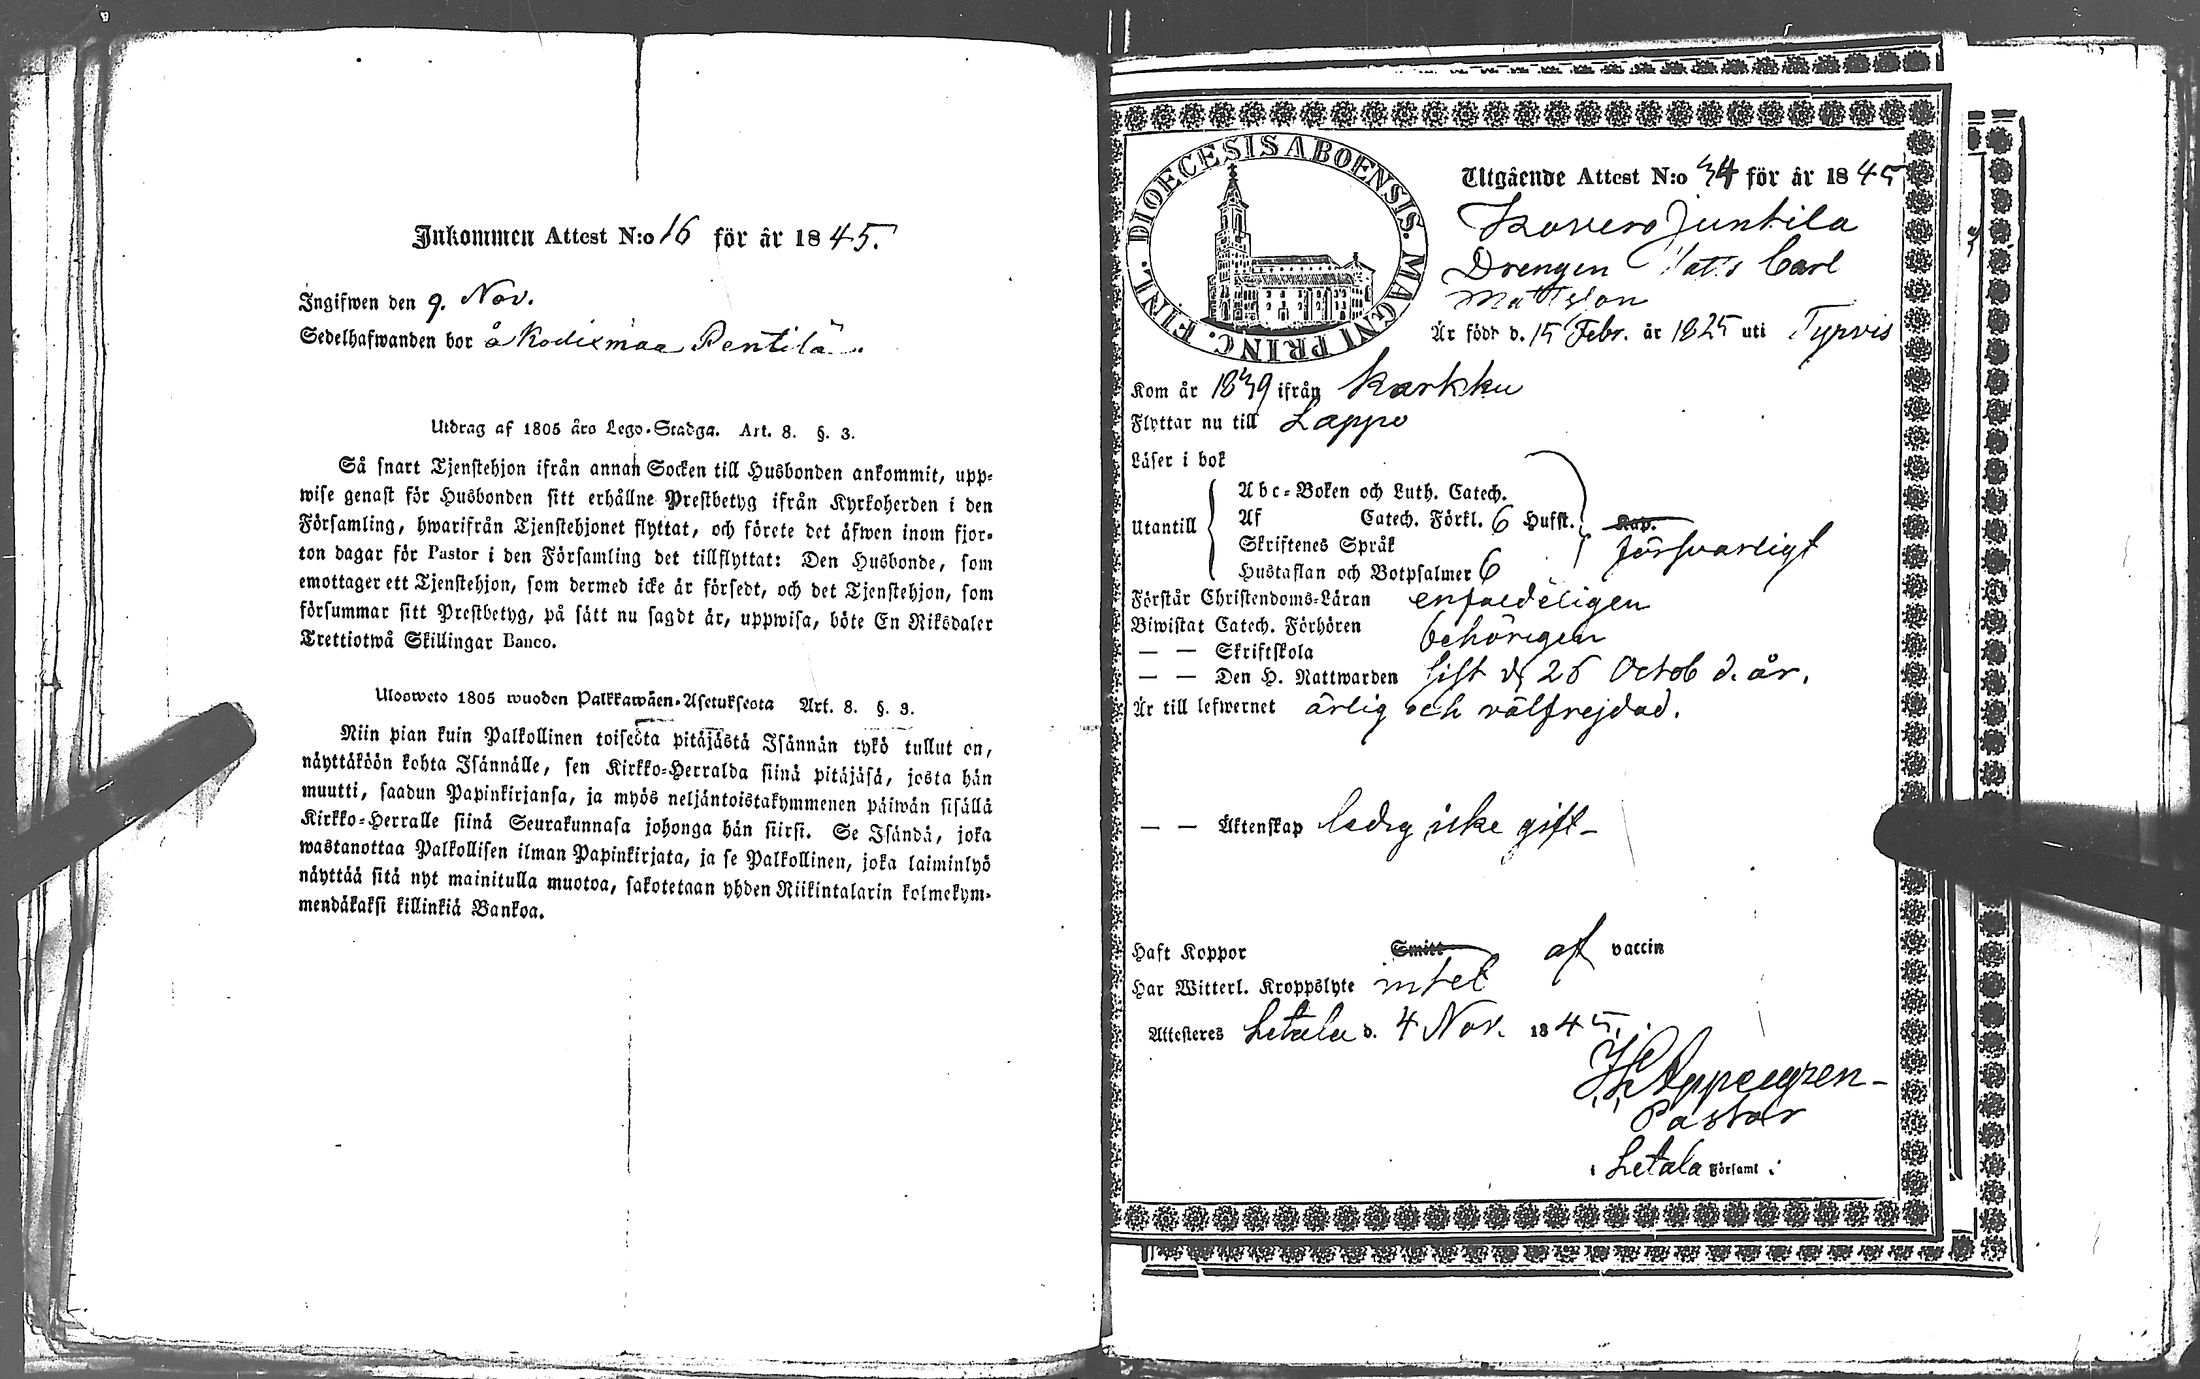 Inkommen Attest N:o 16 för år 1845.
Ingifwen den 9. Nov.
Sedelhafwanden bor å Kodixmaa Pentilä.
Utdrag af 1805 års Lego-Stadga. Art. 8. §. 3.
Så snart Tjenstehjon ifrån annan Socken till Husbonden ankommit, upp-
wise genast för Husbonden sitt erhållne Prestbetyg ifrån Kyrkoherden i den
Församling, hwarifrån Tjenstehjonet flyttat, och förete det äfwen inom fjor-
ton dagar för Pastor i den Församling det tillflyttat: Den Husbonde, som
emottager ett Tjenstehjon, som dermed icke är försedt, och det Tjenstehjon, som
försummar sitt Prestbetyg, på sätt nu sagdt är, uppwisa, böte En Riksdaler
Trettiotwå Skillingar Banco.
Ulosweto 1805 wuoden Palkkawäen-Asetuksesta Art. 8. §. 3.
Niin pian kuin Palkollinen toisesta pitäjästä Isännän tykö tullut on,
näyttäköön kohta Isännälle, sen Kirkko-Herralda siinä pitäjäsä, josta hän
muutti, saadun Papinkirjansa, ja myös neljäntoistakymmenen päiwän sisällä
Kirkko-Herralle siinä Seurakunnasa johonga hän siirsi. Se Isändä, joka
wastanottaa Palkollisen ilman Papinkirjata, ja se Palkollinen, joka laiminlyö
näyttää sitä nyt mainitulla muotoa, sakotetaan yhden Riikintalarin kolmekym-
mendäkaksi killinkiä Bankoa.
FINL. DIOECESIS ABOENSIS. MAGNI PRINC.
Utgående Attest N:o 34 för år 1845
Kovero Juntila
Drengen Matts Carl
Mattsson
Är född d. 15 Febr. år 1825 uti Tyrvis
Kom år 1839 ifrån Karkku
Flyttar nu till Lappo
Läser i bok
Utantill
Abc-Boken och Luth. Catech.
Af Catech. Förkl. 6 Hufst. Kap.
Skriftenes Språk försvarligt
Hustaflan och Botpsalmer 6
Förstår Christendoms-Läran enfaldeligen
Biwistat Catech. Förhören behörigen
— — Skriftskola
— — Den H. Nattwarden sist d 26 Octob d. år.
Är till lefwernet ärlig och välfrejdad.
— — Äktenskap ledig icke gift
Haft Koppor Smitt af vaccin
Har Witterl. Kroppslyte intet
Attesteres Letala d. 4 Nov. 1845.
Appelgren
Pastor
i Letala Församl.